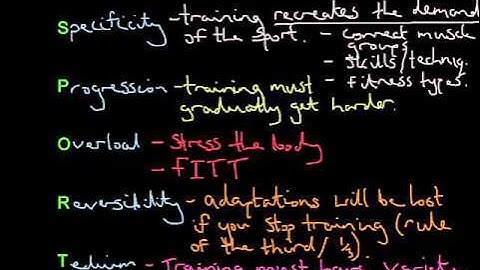 Specificity - training recreates the demand
of the sport. - correct muscle
groups
- skills/techniq.
- fitness types.
Progression - training must
gradually get harder.
Overload - Stress the body
- FITT
Reversibility - adaptations will be lost
if you stop training (rule
of the third / 1/3)
Tedium - Training must have variet